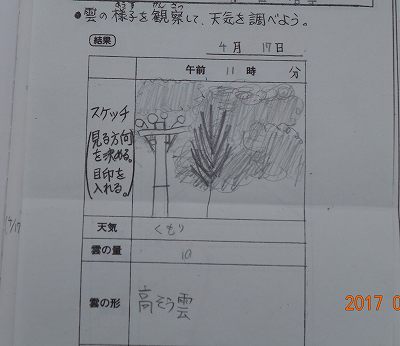 ●雲の様子を観察して、天気を調べよう。
結果
4月 17日
午前 11時 分
スケッチ
見る方向
を決める。
目印を
入れる。
天気
くもり
雲の量
10
雲の形
高そう雲
2017 0